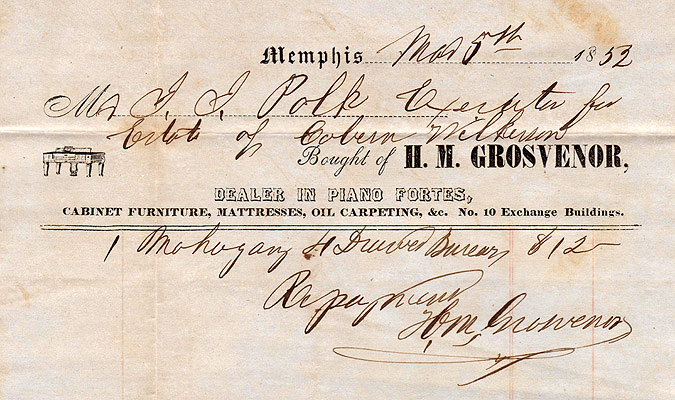 Memphis Mar 5th 1852
Mr J. J. Polk Executor for
Estate of Coburn Wilkerson
Bought of H. M. GROSVENOR,
DEALER IN PIANO FORTES,
CABINET FURNITURE, MATTRESSES, OIL CARPETING, &c. No. 10 Exchange Buildings.
1 Mahogany 4 Drawed Bureau $12–
Rec payment
H. M. Grosvenor